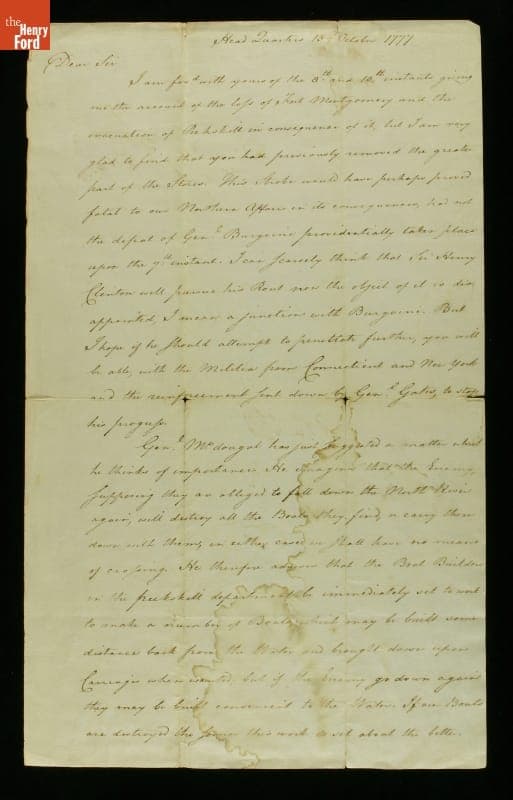 the
Henry
Ford
Head Quarters 15th October 1777
Dear Sir
I am fav.d with yours of the 8th and 10th instants giving
me the account of the loss of Fort Montgomery and the
evacuation of Peekskill in consequence of it, but I am very
glad to find that you had previously removed the greater
part of the Stores. This Stroke would have perhaps proved
fatal to our Northern Affairs in its consequences, had not
the defeat of Gen.l Burgoine providentially taken place
upon the 7th instant. I can scarcely think that Sir Henry
Clinton will pursue his Rout now the object of it is dis
appointed, I mean a junction with Burgoine. But
I hope if he should attempt to penetrate further, you will
be able, with the Militia from Connecticut and New York
and the reinforcement sent down by Gen.l Gates, to stop
his progress.
Gen.l McDougal has just suggested a matter which
he thinks of importance. He imagines that the Enemy,
supposing they are obliged to fall down the North River
again, will destroy all the Boats they find, or carry them
down with them, in either case we shall have no means
of crossing. He therefore advises that the Boat Builders
in the Peekskill department be immediately set to work
to make a number of Boats which may be built some
distance back from the Water and brought down upon
Carriages when wanted, but if the Enemy go down again
they may be built convenient to the Water. If our Boats
are destroyed the sooner this work is set about the better.